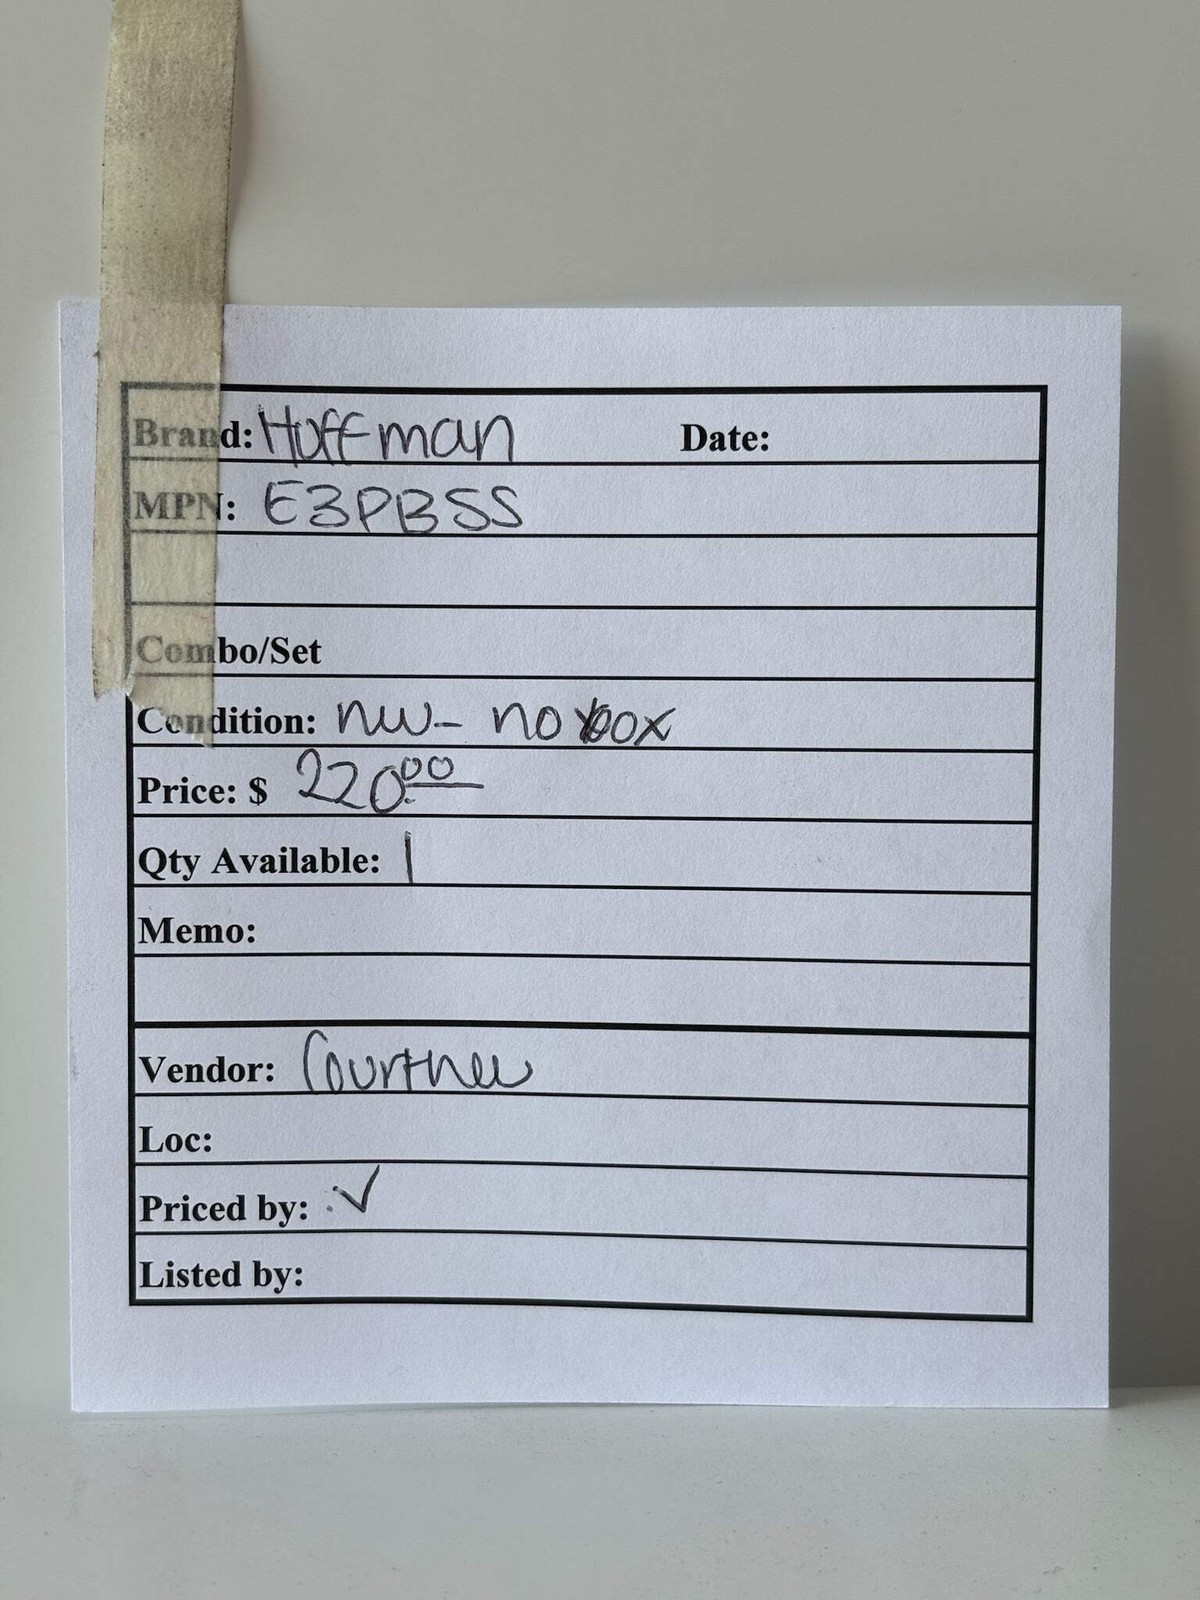 Brand: Hoffman Date:
MPN: E3PBSS
Combo/Set
Condition: nw- no box
Price: $ 220.00
Qty Available: 1
Memo:
Vendor:
Loc:
Priced by: ✓
Listed by: